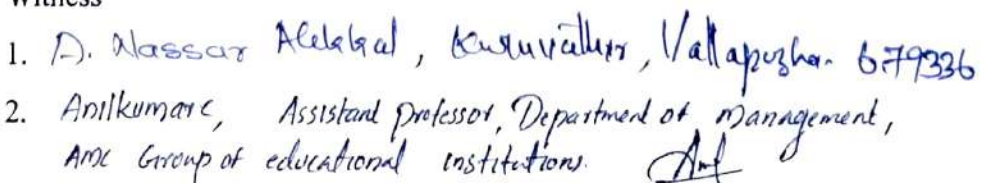 Witness
1. A. Nassar Alekkal, Kuruvattur, Vallapuzha. 679336
2. Anilkumar C, Assistant professor, Department of Management,
AMC Group of educational institutions.